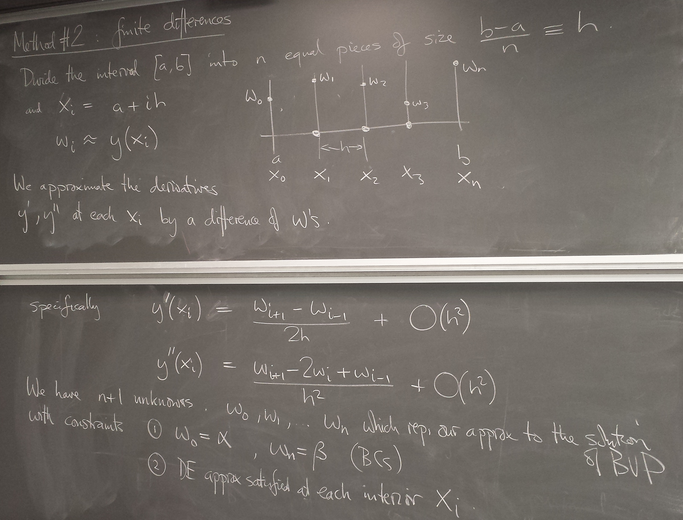 Method #2: finite differences
Divide the interval [a,b] into n equal pieces of size (b-a)/n ≡ h.
and x_i = a + ih
w_i ≈ y(x_i)
w_0 w_1 w_2 w_3 w_n
←h→
a b
x_0 x_1 x_2 x_3 x_n
We approximate the derivatives
y', y'' at each x_i by a difference of w's.
specifically y'(x_i) = (w_{i+1} - w_{i-1})/2h + O(h²)
y''(x_i) = (w_{i+1} - 2w_i + w_{i-1})/h² + O(h²)
We have n+1 unknowns. w_0, w_1, ... w_n which repr our approx to the solution of BVP
with constraints ① w_0 = α, w_n = β (BCs)
② DE approx satisfied at each interior x_i.